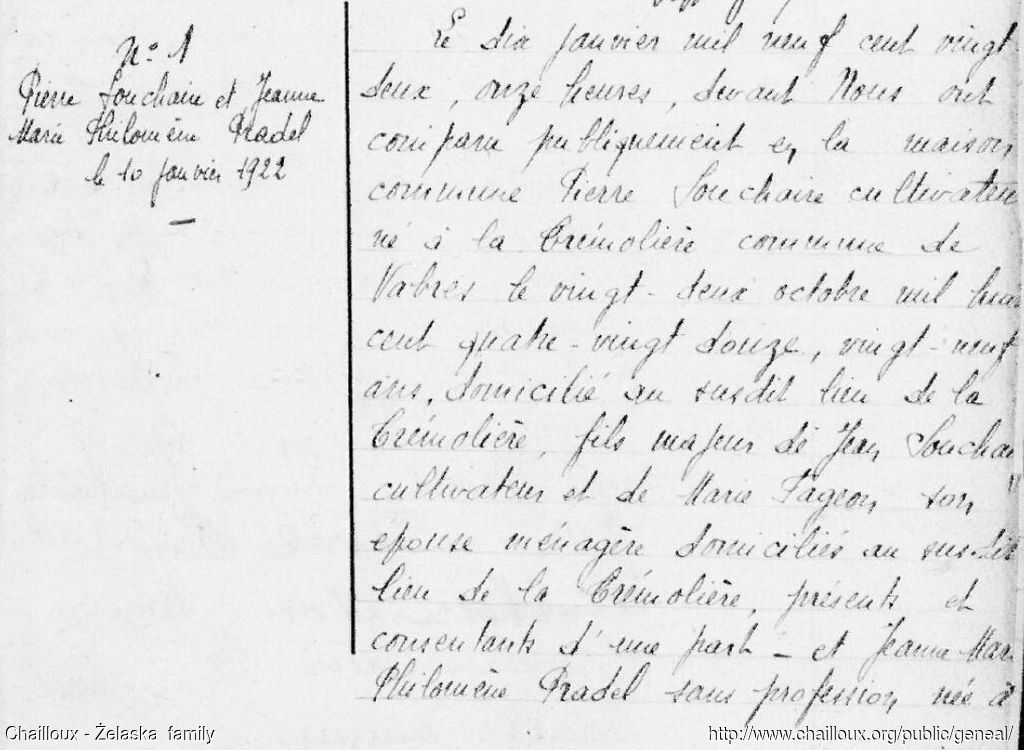 N° 1
Pierre Souchaire et Jeanne
Marie Philomène Pradel
le 10 janvier 1922
Le dix janvier mil neuf cent vingt
deux, onze heures, devant Nous ont
comparu publiquement en la maison
commune Pierre Souchaire cultivateu
né à la Crémolière commune de
Vabres le vingt-deux octobre mil hui
cent quatre-vingt douze, vingt-neuf
ans, domicilié au susdit lieu de la
Crémolière, fils majeur de Jean Souchai
cultivateur et de Marie Fageon son
épouse ménagère domiciliés au susdit
lieu de la Crémolière, présents et
consentants d'une part - et Jeanne Mari
Philomène Pradel sans profession née à
Chailloux - Żelaska family
http://www.chailloux.org/public/geneal/